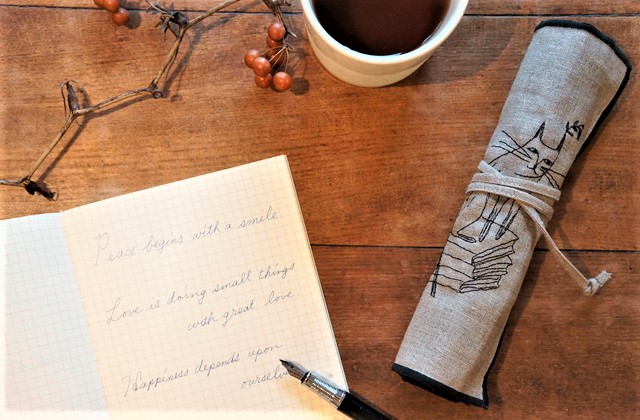 Peace begins with a smile.
Love is doing small things
with great love.
Happiness depends upon